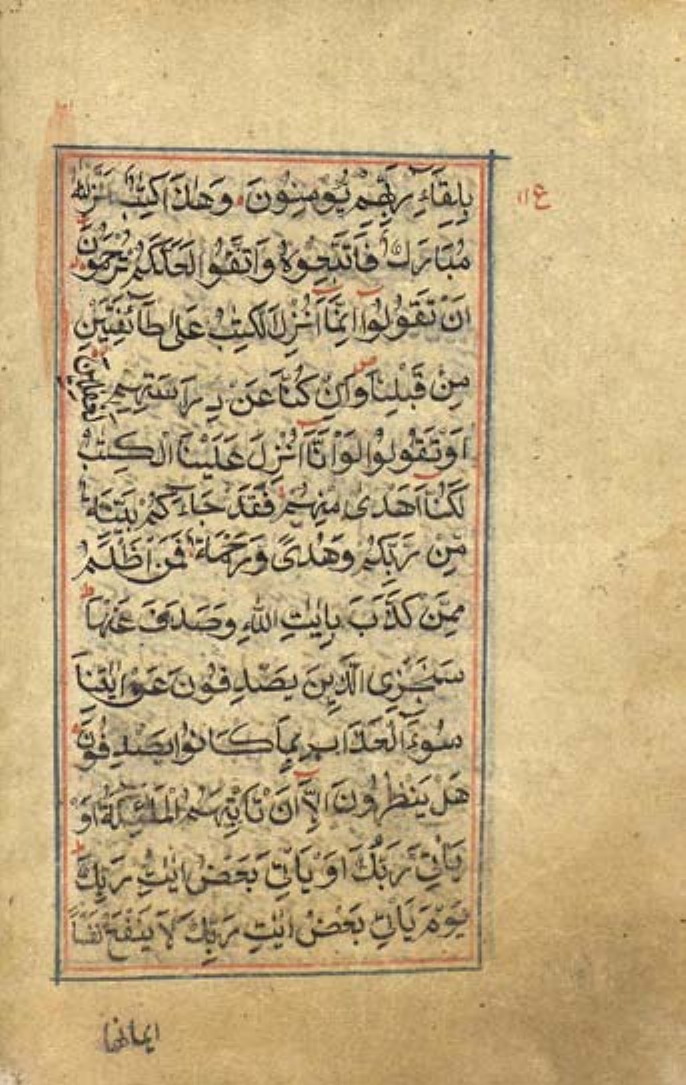 ع ۱۱
بِلِقَاءِ رَبِّهِمْ يُؤْمِنُونَ وَهٰذَا كِتٰبٌ اَنْزَلْنٰهُ
مُبَارَكٌ فَاتَّبِعُوهُ وَاتَّقُوا لَعَلَّكُمْ تُرْحَمُونَ
اَنْ تَقُولُوا اِنَّمَا اُنْزِلَ الْكِتٰبُ عَلٰى طَائِفَتَيْنِ
مِنْ قَبْلِنَا وَاِنْ كُنَّا عَنْ دِرَاسَتِهِمْ لَغٰفِلِينَ
اَوْ تَقُولُوا لَوْ اَنَّا اُنْزِلَ عَلَيْنَا الْكِتٰبُ
لَكُنَّا اَهْدٰى مِنْهُمْ فَقَدْ جَاءَكُمْ بَيِّنَةٌ
مِنْ رَبِّكُمْ وَهُدًى وَرَحْمَةٌ فَمَنْ اَظْلَمُ
مِمَّنْ كَذَّبَ بِاٰيٰتِ اللّٰهِ وَصَدَفَ عَنْهَا
سَنَجْزِى الَّذِينَ يَصْدِفُونَ عَنْ اٰيٰتِنَا
سُوءَ الْعَذَابِ بِمَا كَانُوا يَصْدِفُونَ
هَلْ يَنْظُرُونَ اِلَّا اَنْ تَاْتِيَهُمُ الْمَلٰئِكَةُ اَوْ
يَاْتِىَ رَبُّكَ اَوْ يَاْتِىَ بَعْضُ اٰيٰتِ رَبِّكَ
يَوْمَ يَاْتِى بَعْضُ اٰيٰتِ رَبِّكَ لَا يَنْفَعُ نَفْسًا
ايمانها